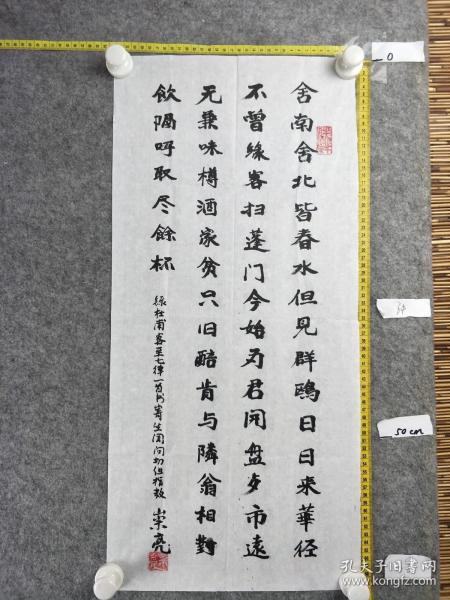 舍南舍北皆春水但见群鷗日日来華径
不曾緣客扫蓬门今始为君開盘夕市遠
无兼味樽酒家贫只旧醅肯与隣翁相對
飲隔呼取尽餘杯
錄杜甫客至七律一首
崇亮
0
50cm
孔夫子旧书网
kongfz.com